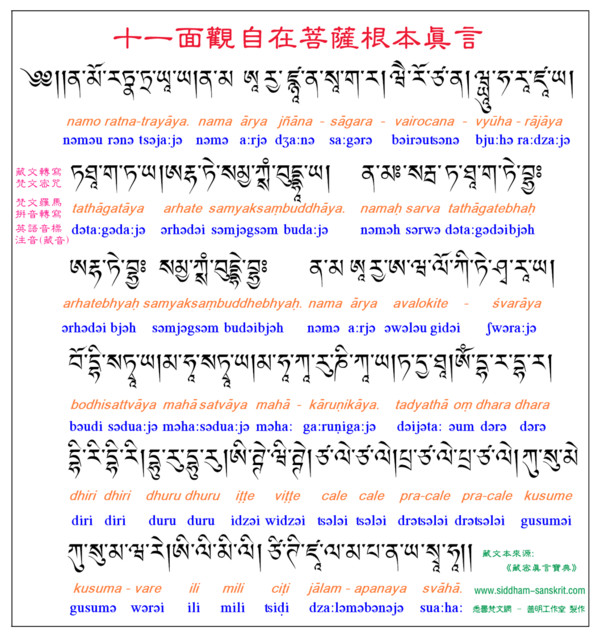 十一面觀自在菩薩根本眞言
༄༅།།ན་མོ་རཏྣ་ཏྲ་ཡཱ་ཡ།ན་མ ཨཱ་རྱ་ཛྙཱ་ན་སཱ་ག་ར། ཝཻ་རོ་ཙ་ན། ཝྱཱུ་ཧ་རཱ་ཛཱ་ཡ།
namo ratna-trayāya. nama ārya jñāna - sāgara - vairocana - vyūha - rājāya
nəməu rənə tsəja:jə nəmə a:rjə dʒa:nə sa:gərə bəirəutsənə bju:hə ra:dza:jə
藏文轉寫
梵文密咒
ཏ་ཐཱ་ག་ཏཱ་ཡ།ཨརྷ་ཏེ་སམྱ་ཀྶཾ་བུདྡྷཱ་ཡ། ན་མཿ་སརྦ་ཏ་ཐཱ་ག་ཏེ་བྷྱཿ
梵文羅馬
拼音轉寫
tathāgatāya arhate samyaksaṃbuddhāya. namaḥ sarva tathāgatebhaḥ
英語音標
注音(藏音)
dəta:gəda:jə ərhədəi səmjəgsəm buda:jə nəməh sərwə dəta:gədəibjəh
ཨརྷ་ཏེ་བྷྱཿ སམྱ་ཀྶཾ་བུདྡྷེ་བྷྱཿ ན་མ ཨཱ་རྱ་ཨ་ཝ་ལོ་ཀི་ཏེ་ཤྭ་རཱ་ཡ།
arhatebhyaḥ samyaksaṃbuddhebhyaḥ. nama ārya avalokite - śvarāya
ərhədəi bjəh səmjəgsəm budəibjəh nəmə a:rjə əwələu gidəi ʃwəra:jə
བོ་དྷི་སཏྭཱ་ཡ།མ་ཧཱ་སཏྭཱ་ཡ།མ་ཧཱ་ཀཱ་རུ་ཎི་ཀཱ་ཡ།ཏ་དྱ་ཐཱ།ཨོཾ་དྷ་ར་དྷ་ར།
bodhisattvāya mahā satvāya mahā - kāruṇikāya. tadyathā oṃ dhara dhara
bəudi sədua:jə məha:sədua:jə məha: ga:runigə:jə dəijəta: əum dərə dərə
དྷི་རི་དྷི་རི།དྷུ་རུ་དྷུ་རུ།ཨི་ཊྚེ་ཝི་ཊྚེ།ཙ་ལེ་ཙ་ལེ།པྲ་ཙ་ལེ་པྲ་ཙ་ལེ།ཀུ་སུ་མེ
dhiri dhiri dhuru dhuru iṭṭe viṭṭe cale cale pra-cale pra-cale kusume
diri diri duru duru idzəi widzəi tsələi tsələi drətsələi drətsələi gusuməi
ཀུ་སུ་མ་ཝ་རེ།ཨི་ལི་མི་ལི། ཙི་ཊི་ཛཱ་ལ་མ་པ་ན་ཡ་སྭཱ་ཧཱ།།
kusuma - vare ili mili ciṭi jālam - apanaya svāhā.
gusumə wərəi ili mili tsidi dza:ləməbənəjə sua:ha:
藏文本來源:
《藏密眞言寶典》
www.siddham-sanskrit.com
悉曇梵文網 - 工作室 製作